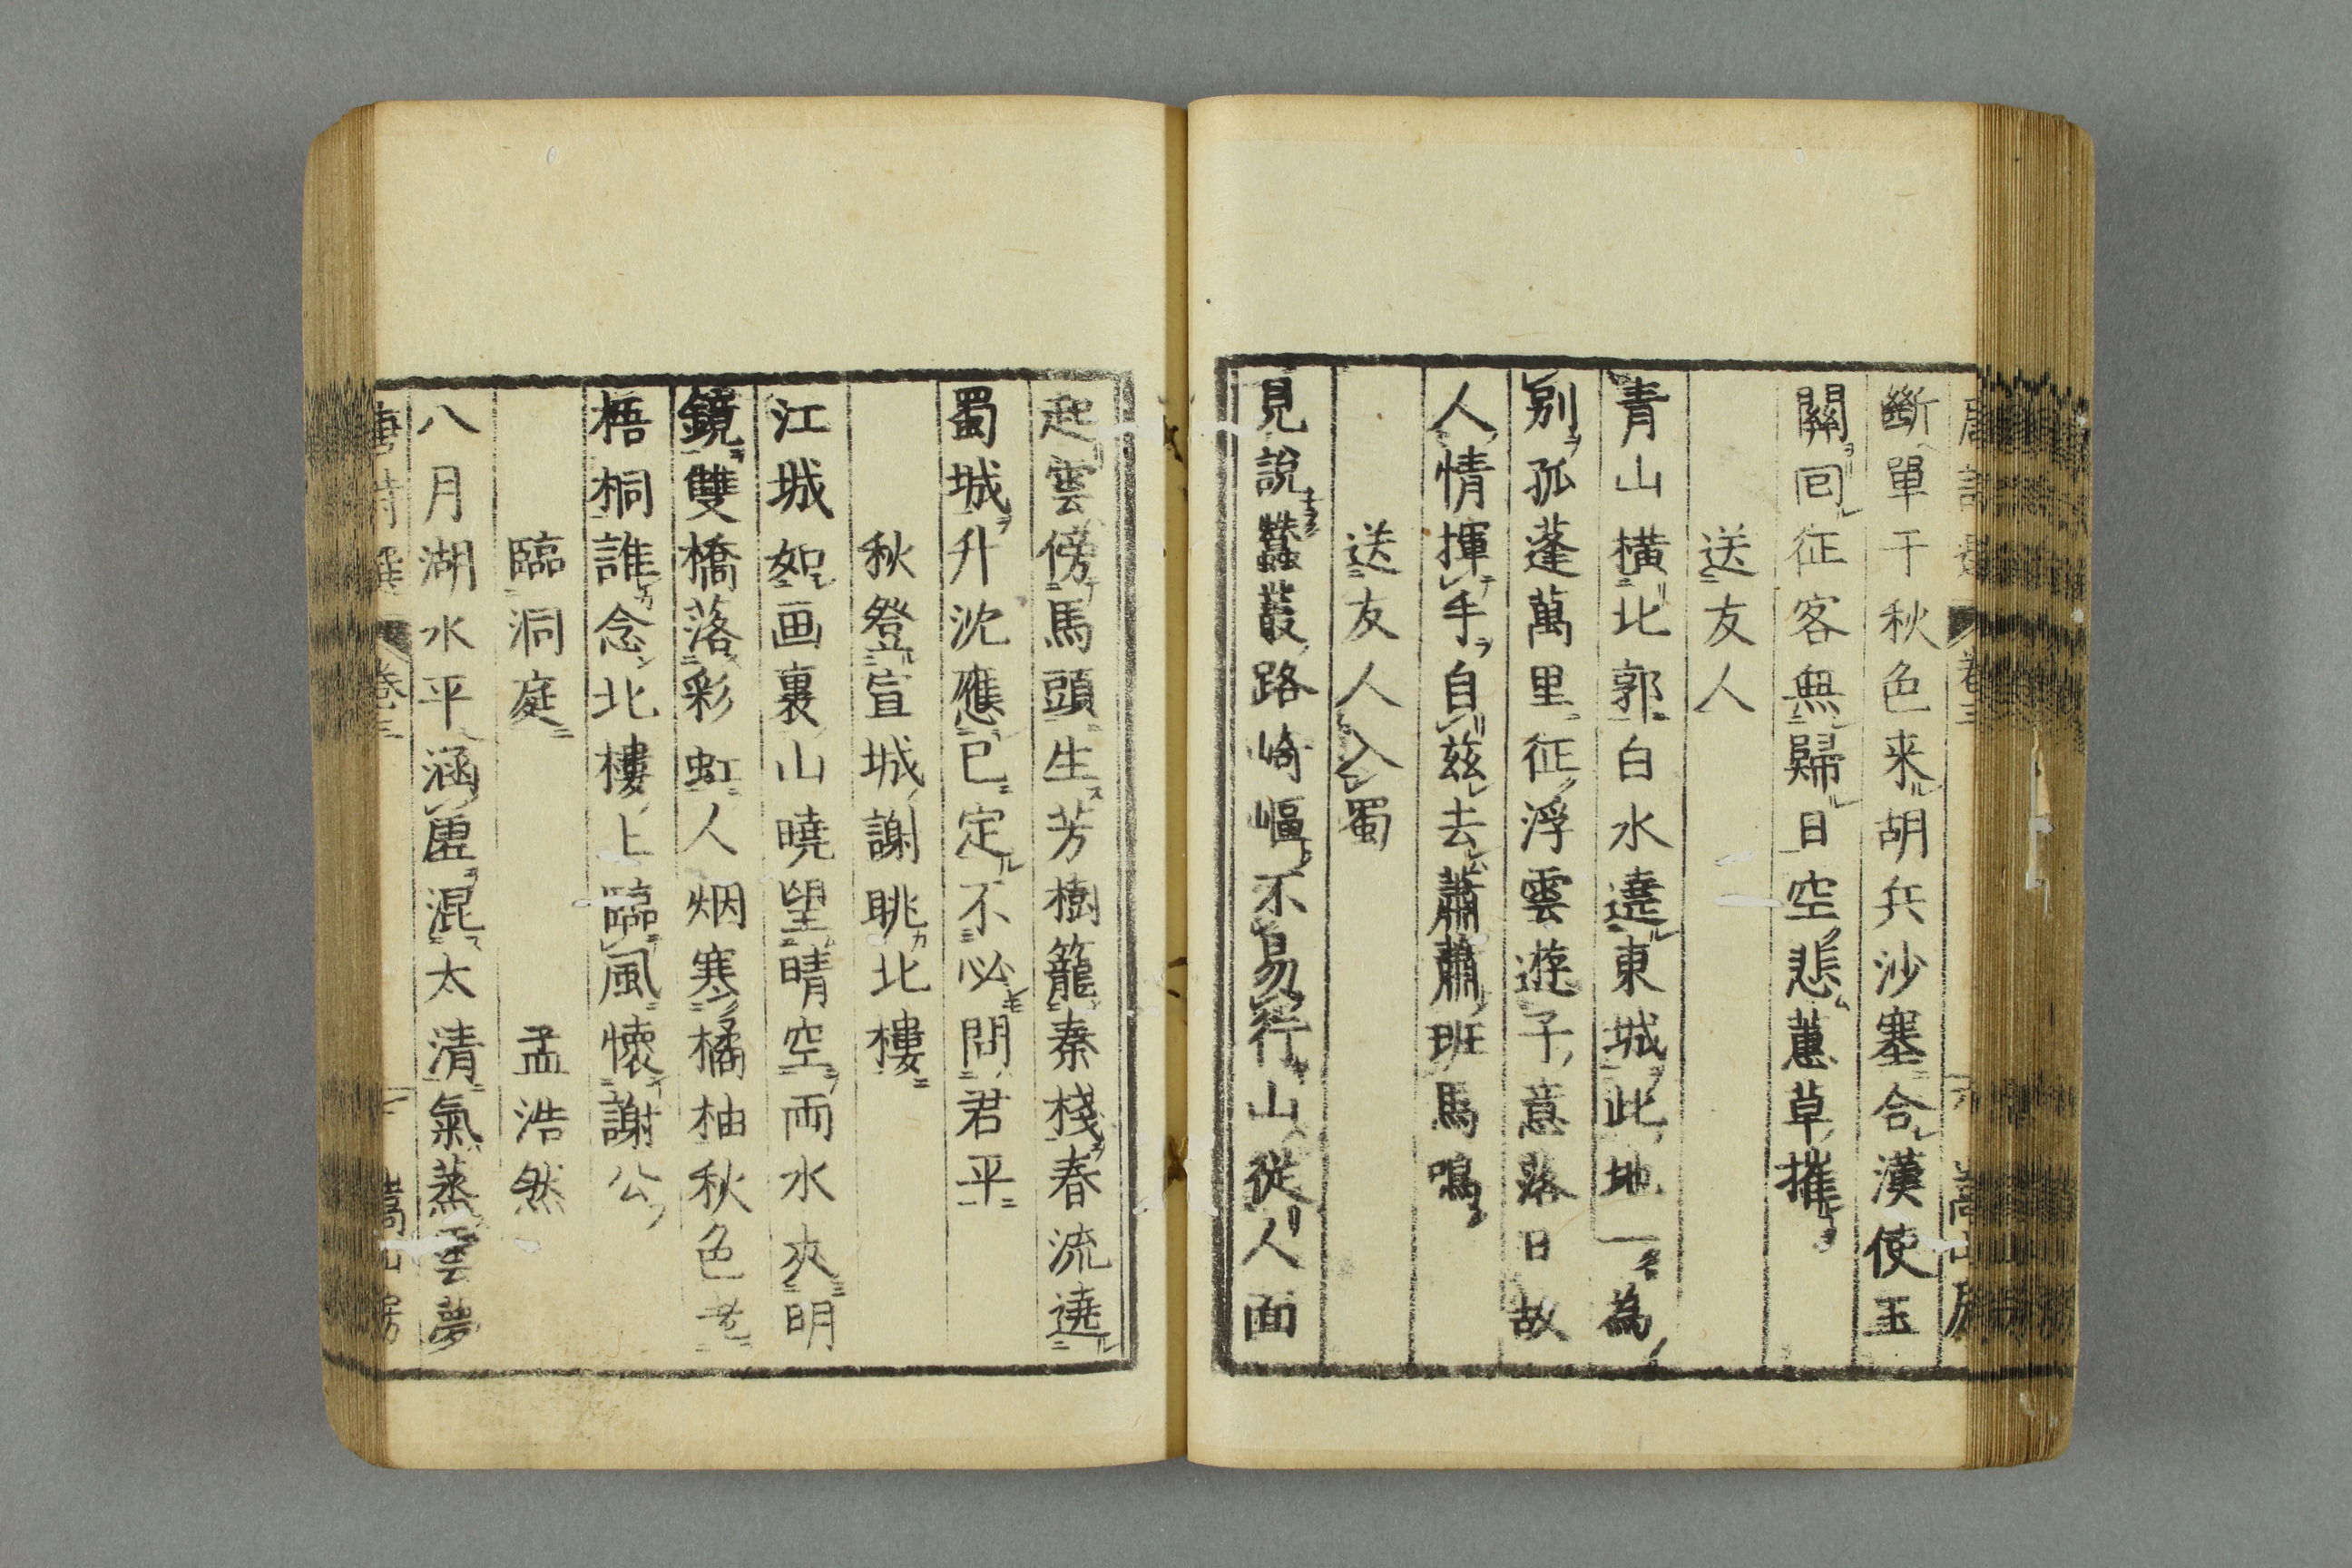 斷單于秋色来胡兵沙塞合漢使玉
關回征客無歸日空悲蕙草摧
送友人
青山橫北郭白水遶東城此地一為
別孤蓬萬里征浮雲遊子意落日故
人情揮手自茲去蕭蕭班馬鳴
送友人入蜀
見說蠶叢路崎嶇不易行山從人面
起雲傍馬頭生芳樹籠秦棧春流遶
蜀城升沈應已定不必問君平
秋登宣城謝眺北樓
江城如画裏山曉望晴空兩水夾明
鏡雙橋落彩虹人烟寒橘柚秋色老
梧桐誰念北樓上臨風懷謝公
臨洞庭 孟浩然
八月湖水平涵虛混太清氣蒸雲夢
唐詩選 卷三 嵩山房